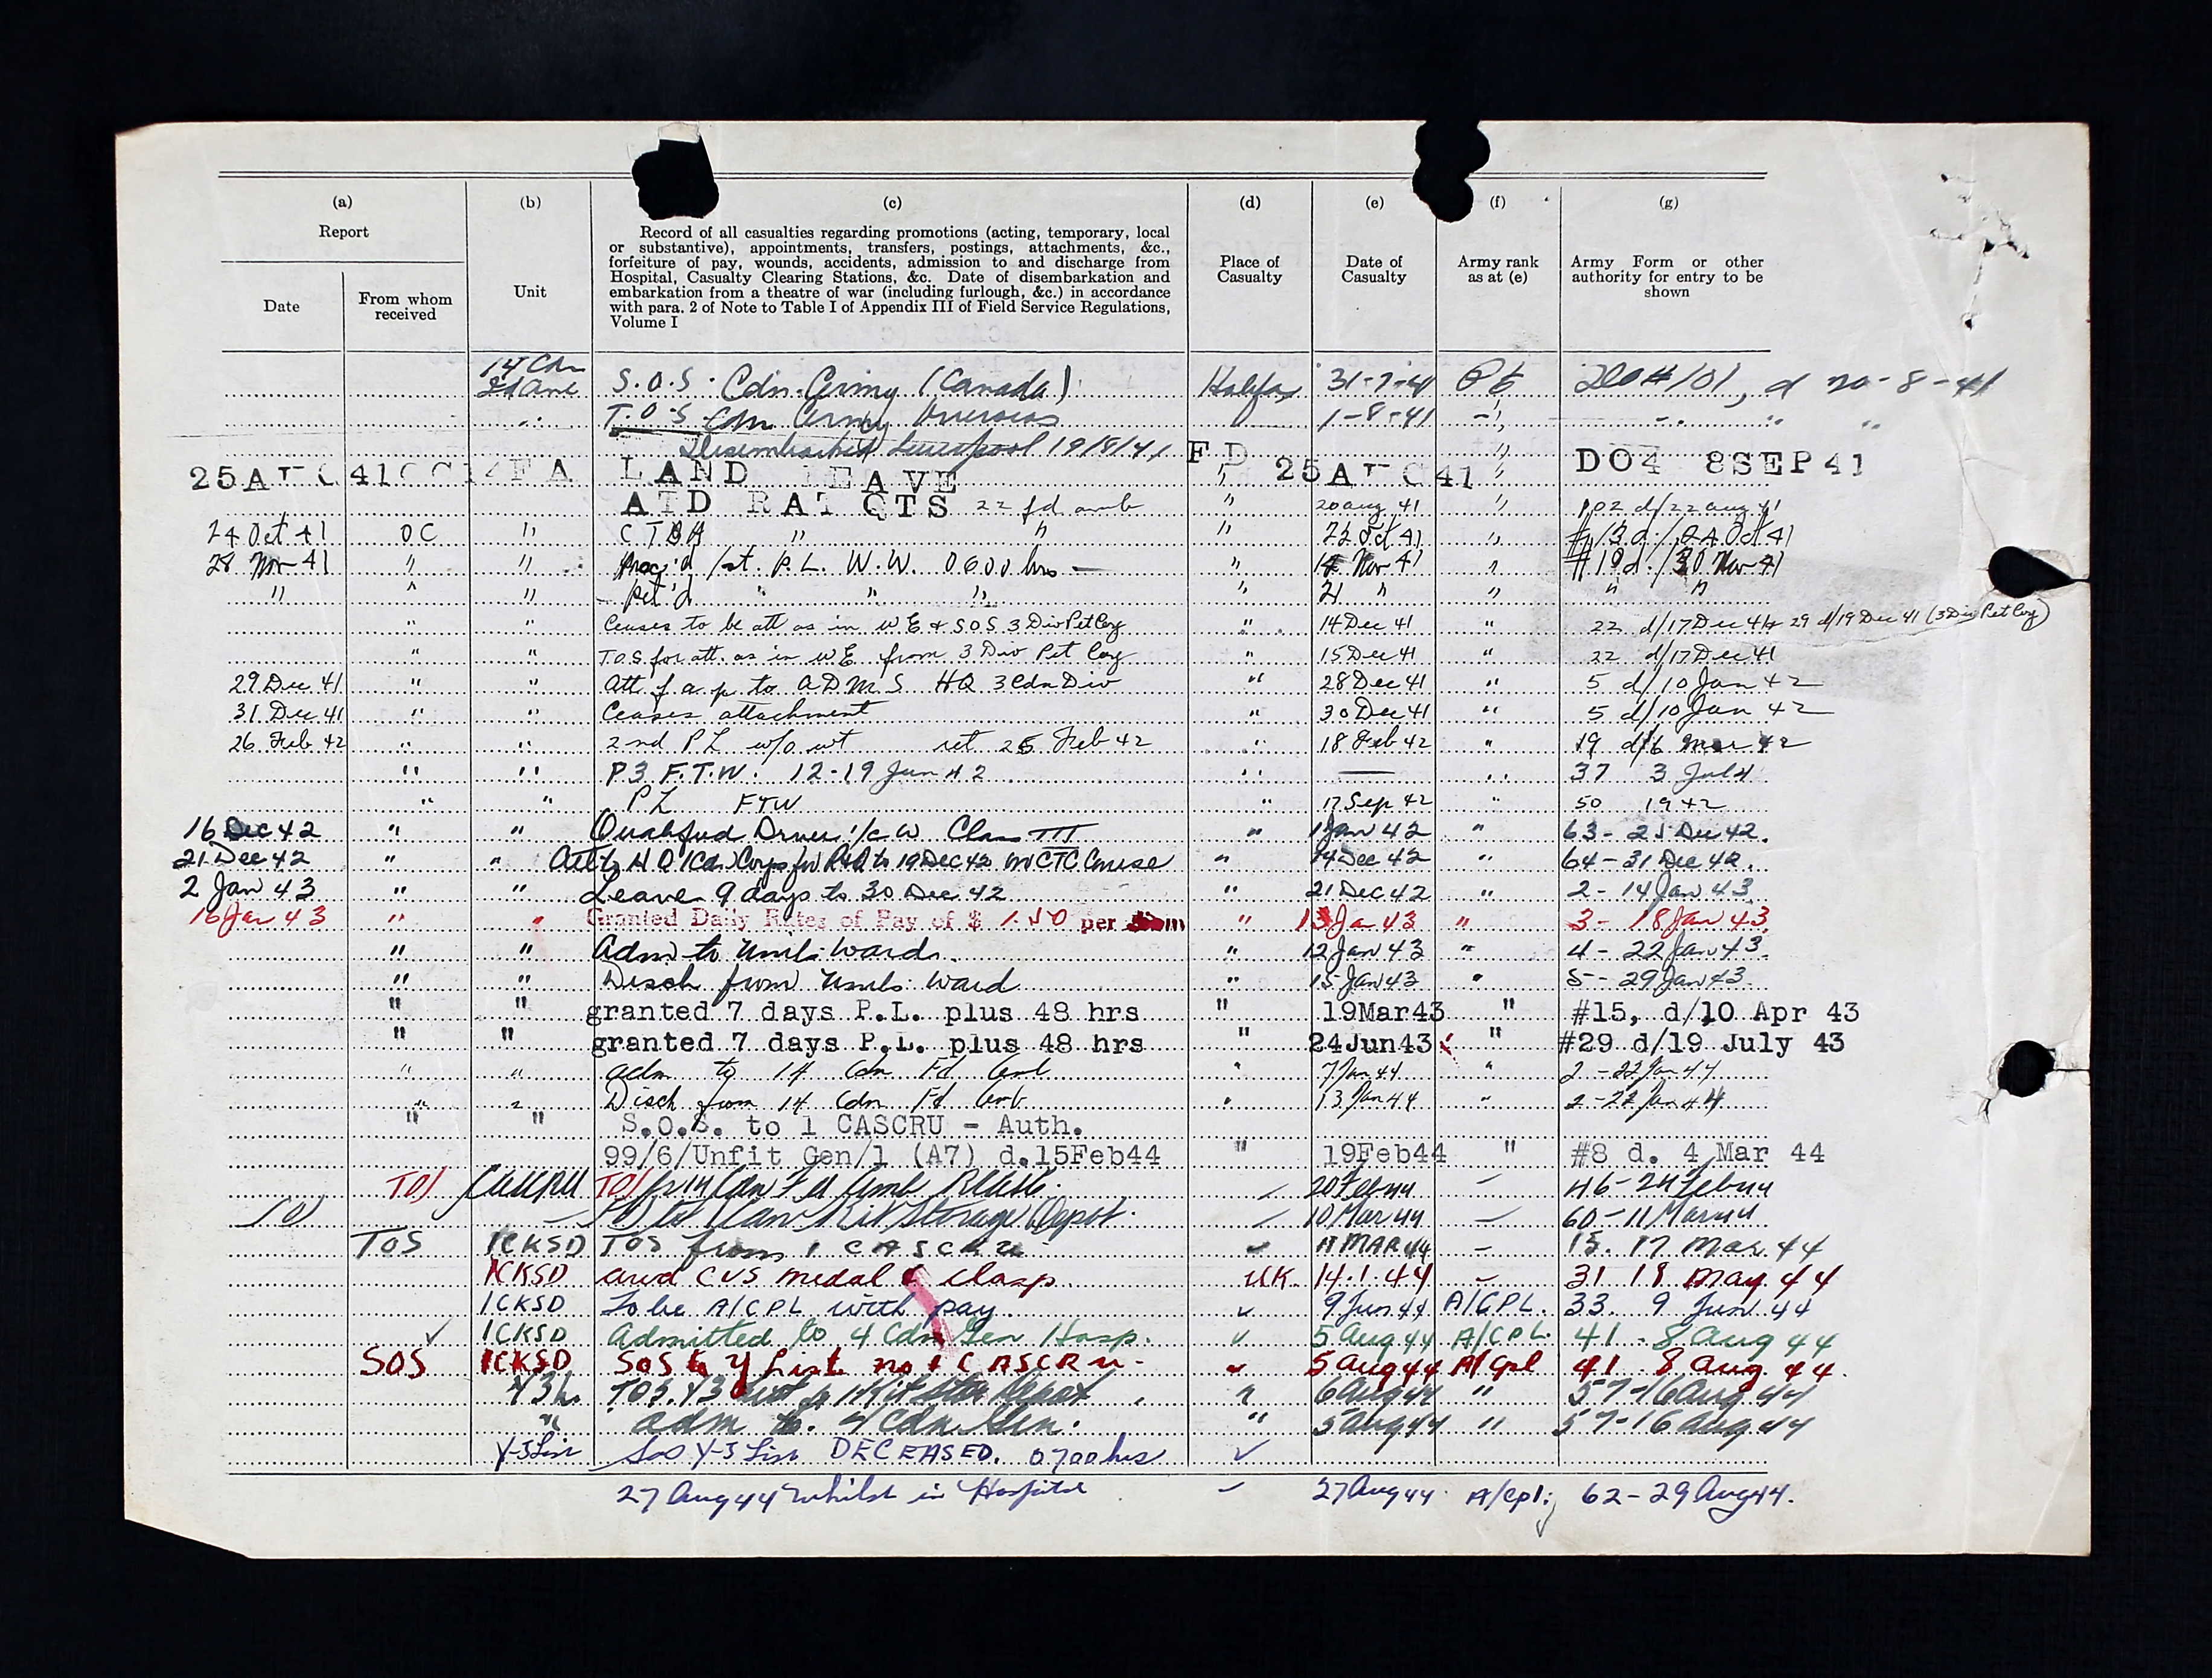 (a) (b) (c) (d) (e) (f) (g)
Report
Date
From whom
received
Unit
Record of all casualties regarding promotions (acting, temporary, local
or substantive), appointments, transfers, postings, attachments, &c.,
forfeiture of pay, wounds, accidents, admission to and discharge from
Hospital, Casualty Clearing Stations, &c. Date of disembarkation and
embarkation from a theatre of war (including furlough, &c.) in accordance
with para. 2 of Note to Table I of Appendix III of Field Service Regulations,
Volume I
Place of
Casualty
Date of
Casualty
Army rank
as at (e)
Army Form or other
authority for entry to be
shown
14 Cdn
S.O.S. Cdn. Army (Canada) Halifax 31-7-41 Pte #101, d 20-8-41
T.O.S. Cdn Army Overseas 1-8-41 " " "
Disembarked Liverpool 19/8/41 "
25A 41 LAND LEAVE FD 25A 41 " DO4 8SEP41
ATD RAT QTS 22 fd amb " 20 aug 41 " 102 d/22 aug 41
24 Oct 41 OC " " " " 22 Oct 41 " #13 d/24 Oct 41
28 Nov 41 " " Proc'd 1st. P.L. W.W. 0600 hrs — " 14 Nov 41 " #19 d/30 Nov 41
" " " Ret'd " " " " 21 " " " "
" " Ceases to be att as in WE & SOS 3 Div Pet Coy " 14 Dec 41 " 22 d/17 Dec 41 29 d/19 Dec 41 (3 Div Pet Coy)
" " T.O.S for att. as in WE from 3 Div Pet Coy " 15 Dec 41 " 22 d/17 Dec 41
29 Dec 41 " " Att f a p to ADMS HQ 3 Cdn Div " 28 Dec 41 " 5 d/10 Jan 42
31 Dec 41 " " Ceases attachment " 30 Dec 41 " 5 d/10 Jan 42
26 Feb 42 " " 2nd PL w/o wt ret 25 Feb 42 " 18 Feb 42 " 19 d/6 Mar 42
" " P3 F.T.W. 12-19 Jun 42 " — " 37 3 Jul
" " PL FTW " 17 Sep 42 " 50 1942
16 Dec 42 " " Qualified Driver i/c W Class III " 1 Jan 42 " 63 - 25 Dec 42.
21 Dec 42 " " Att to HQ 1 Cdn Corps for R&Q to 19 Dec 42 CTC Course " 14 Dec 42 " 64 - 31 Dec 42.
2 Jan 43 " " Leave 9 days to 30 Dec 42 " 21 Dec 42 " 2 - 14 Jan 43
16 Jan 43 " " Granted Daily Rates of Pay of $ 1.50 per " 13 Jan 43 " 3 - 18 Jan 43.
" " Adm to Units Ward. " 12 Jan 43 " 4 - 22 Jan 43.
" " Disch from Units Ward " 15 Jan 43 " 5 - 29 Jan 43.
" " granted 7 days P.L. plus 48 hrs " 19Mar43 " #15, d/10 Apr 43
" " granted 7 days P.L. plus 48 hrs " 24Jun43 " #29 d/19 July 43
" " Adm to 14 Cdn Fd Amb " 7 Jan 44 " 2 - 22 Jan 44
" " Disch from 14 Cdn Fd Amb " 13 Jan 44 " 2 - 22 Jan 44
" " S.O.S. to 1 CASCRU - Auth.
99/6/Unfit Gen/1 (A7) d.15Feb44 " 19Feb44 " #8 d. 4 Mar 44
TOS CASCRU TOS 14 Cdn Fd Amb 20 Feb 44 — 46 - 24 Feb 44
SOS to 1 Can Kit Storage Depot. 10 Mar 44 — 60 - 11 Mar 44
TOS 1CKSD TOS from 1 CASCRU 11 MAR 44 — 15. 17 Mar. 44
1CKSD awd CVS medal & Clasp UK. 14.1.44 — 31 18 May 44
1CKSD To be A/CPL with pay 9 Jun 44 A/CPL. 33. 9 Jun 44
1CKSD Admitted to 4 Cdn Gen Hosp. 5 Aug 44 A/CPL. 41. 8 Aug 44
SOS 1CKSD SOS to Y List no 1 CASCRU. 5 Aug 44 A/Cpl 41. 8 Aug 44.
TOS. Y3 List fr 1 Kit Stor Depot " 6 Aug 44 " 57-16 Aug 44
" adm to. 4 Cdn Gen. " 5 Aug 44 " 57-16 Aug 44
Y-3 List SOS Y-3 List DECEASED. 0700 hrs
27 Aug 44 whilst in Hospital — 27 Aug 44 A/Cpl. 62 - 29 Aug 44.